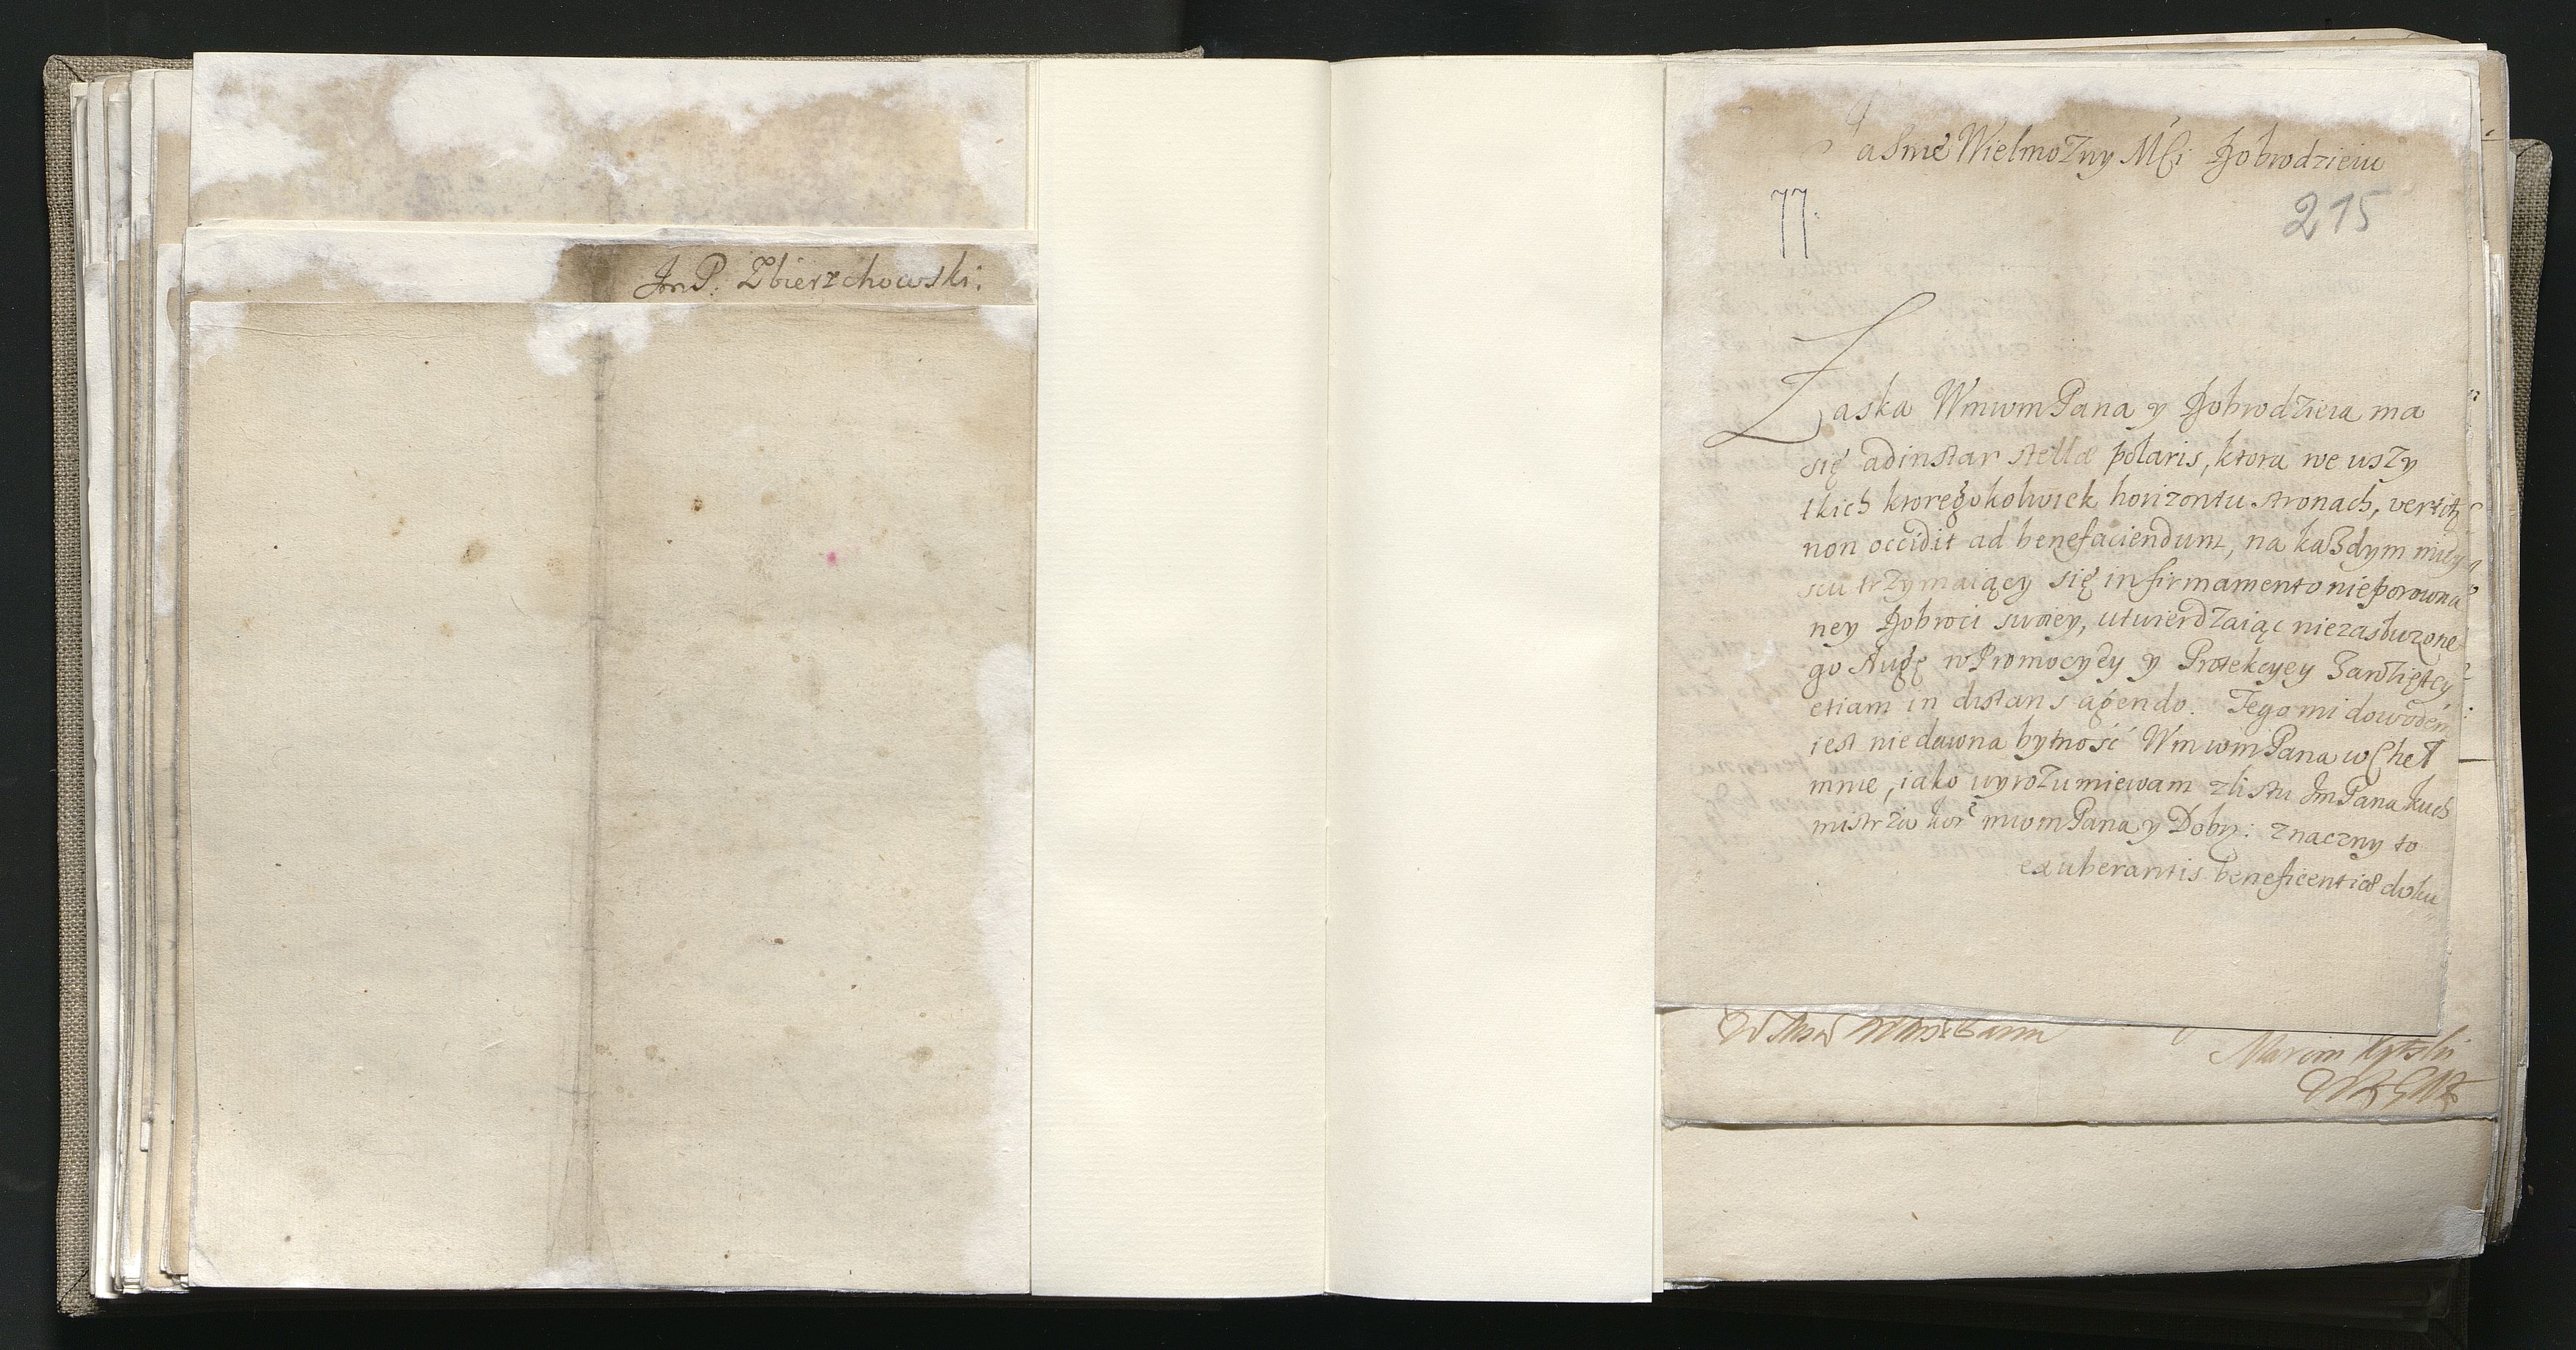 JmP. Zbierzchowski:
Jasnie Wielmożny Mći Dobrodzieiu
77.
215
Łaska WmwmPana y Dobrodzieia ma
się adinstar stellæ polaris, ktora we uszy
tkich ktoregokolwiek horizontu stronach, vertitr
non occidit ad benefaciendum, na każdym miey
scu trzymaiący się in firmamento nieporowna
ney Dobroci swoiey, utwierdzaiąc niezasłuzone
go sługę w Promocyey y Protekcyey Zawziętey
etiam in distans agendo. Tego mi dowodem
iest niedawna bytność WmwmPana w Cheł
mnie, iako wyrozumiewam z listu JmPana kuch
mistrza kor: mwmPana y Dobr: znaczny to
exuberantis beneficentiæ doku
Marcin Kątski